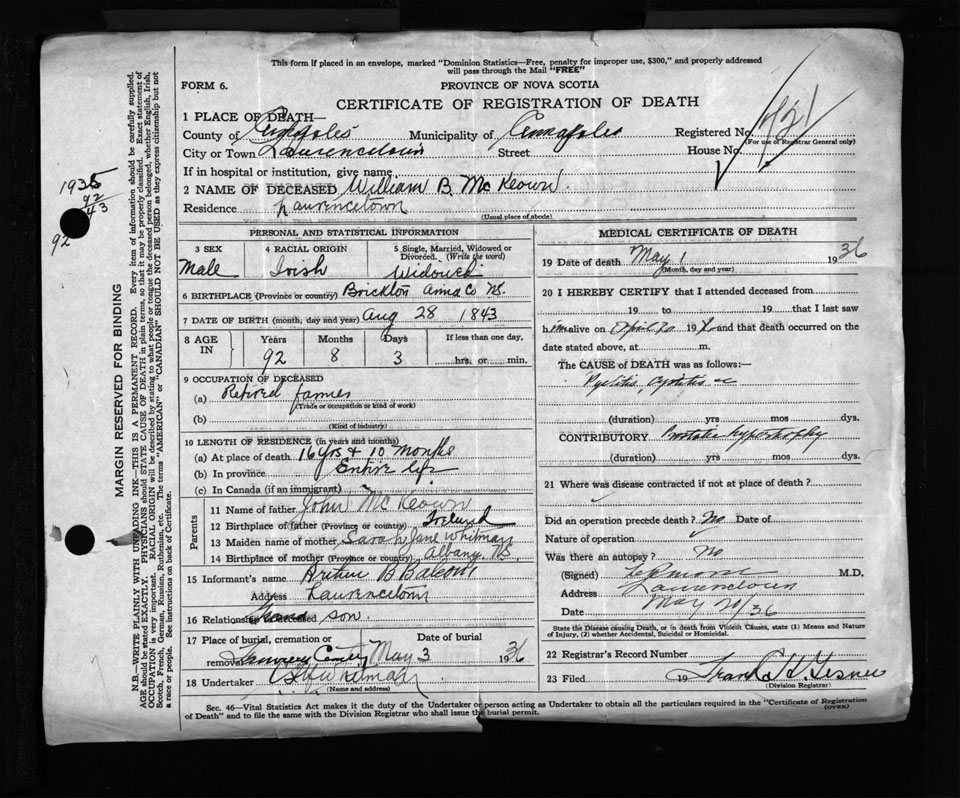 This form if placed in an envelope, marked "Dominion Statistics—Free, penalty for improper use, $300," and properly addressed
will pass through the Mail "FREE"
FORM 6.
PROVINCE OF NOVA SCOTIA
CERTIFICATE OF REGISTRATION OF DEATH
1 PLACE OF DEATH—
County of Annapolis Municipality of Annapolis Registered No.
(For use of Registrar General only)
City or Town Lawrencetown Street House No.
If in hospital or institution, give name
2 NAME OF DECEASED William B. McKeown.
Residence Lawrencetown
(Usual place of abode)
PERSONAL AND STATISTICAL INFORMATION
3 SEX 4 RACIAL ORIGIN 5 Single, Married, Widowed or Divorced. (Write the word)
Male Irish Widowed
6 BIRTHPLACE (Province or country) Brickton Anna Co NS.
7 DATE OF BIRTH (month, day and year) Aug 28 1843
8 AGE IN Years Months Days If less than one day,
92 8 3 hrs. or min.
9 OCCUPATION OF DECEASED
(a) Retired farmer
(Trade or occupation or kind of work)
(b)
(Kind of industry)
10 LENGTH OF RESIDENCE (in years and months)
(a) At place of death 16 yrs + 10 months
(b) In province Entire life
(c) In Canada (if an immigrant)
Parents
11 Name of father John McKeown
12 Birthplace of father (Province or country) Ireland
13 Maiden name of mother Sarah Jane Whitman
14 Birthplace of mother (Province or country) Albany NS.
15 Informant's name Arthur B Balcom
Address Lawrencetown
16 Relationship Grand son.
17 Place of burial, cremation or removal Date of burial
May 3 1936
18 Undertaker
(Name and address)
MEDICAL CERTIFICATE OF DEATH
19 Date of death May 1 1936
(Month, day and year)
20 I HEREBY CERTIFY that I attended deceased from
19 to 19 that I last saw
him alive on April 20 19 and that death occurred on the
date stated above, at m.
The CAUSE OF DEATH was as follows:—
Pyelitis, cystitis
(duration) yrs mos dys.
CONTRIBUTORY Prostatic hypertrophy
(duration) yrs mos dys.
21 Where was disease contracted if not at place of death?
Did an operation precede death? No Date of
Nature of operation
Was there an autopsy? No
(Signed) M.D.
Address Lawrencetown
Date May 20/36
State the Disease causing Death, or in death from Violent Causes, state (1) Means and Nature
of Injury, (2) whether Accidental, Suicidal or Homicidal.
22 Registrar's Record Number
23 Filed 19 Frank H. Gesner
(Division Registrar)
Sec. 46—Vital Statistics Act makes it the duty of the Undertaker or person acting as Undertaker to obtain all the particulars required in the "Certificate of Registration
of Death" and to file the same with the Division Registrar who shall issue the burial permit.
(OVER)
MARGIN RESERVED FOR BINDING
N.B.—WRITE PLAINLY WITH UNFADING INK—THIS IS A PERMANENT RECORD. Every item of information should be carefully supplied.
AGE should be stated EXACTLY. PHYSICIANS should STATE CAUSE OF DEATH in plain terms, so that it may be properly classified. Exact statement of
OCCUPATION is very important. RACIAL ORIGIN will be described by stating to what people or tongue the deceased person belonged, whether English, Irish,
Scotch, French, German, Russian, Ruthenian, etc. The terms "AMERICAN" or "CANADIAN" SHOULD NOT BE USED as they express citizenship but not
a race or people. See instructions on back of Certificate.
1935
92
43
92